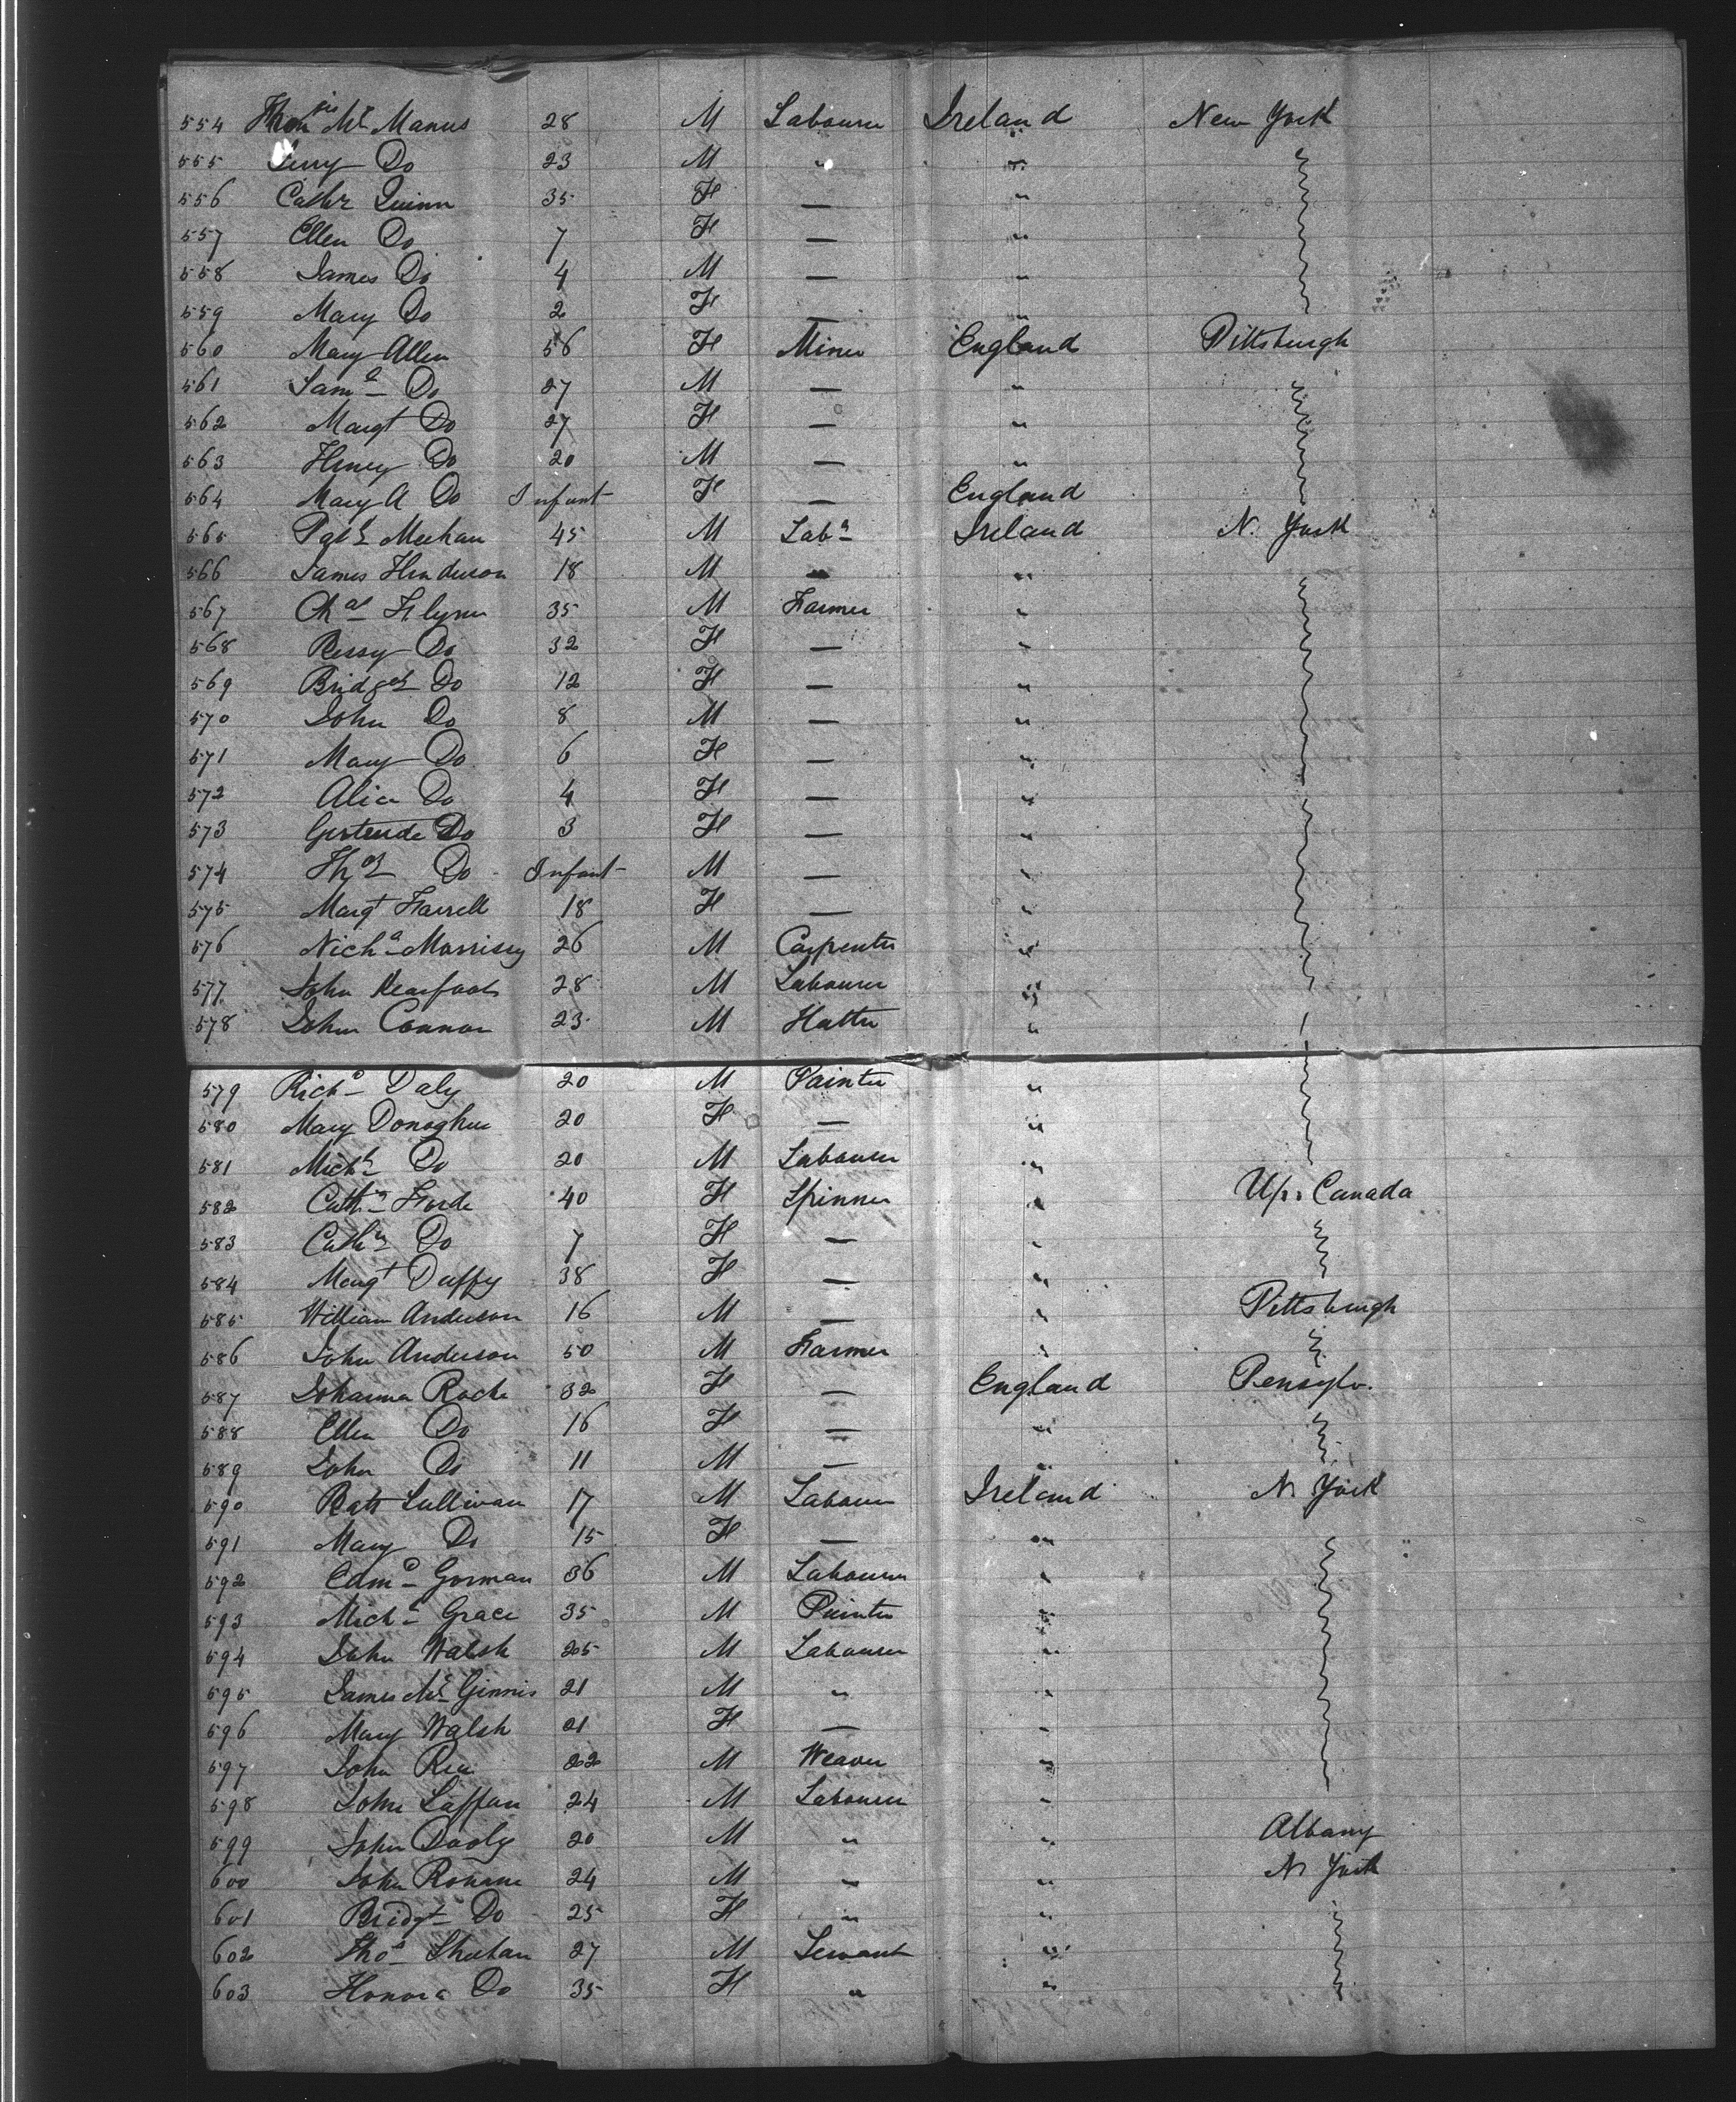 554 Thos Mc Manus 28 M Labourer Ireland New York
555 Terry Do 23 M " "
556 Cathr Quinn 35 F — "
557 Ellen Do 7 F — "
558 James Do 4 M — "
559 Mary Do 2 F — "
560 Mary Allen 56 F Miner England Pittsburgh
561 Saml Do 27 M — "
562 Margt Do 27 F — "
563 Henry Do 20 M — "
564 Mary A Do Infant F — England
565 Patk Meehan 45 M Labr Ireland N. York
566 James Henderson 18 M — "
567 Chas Flynn 35 M Farmer "
568 Bessy Do 32 F — "
569 Bridget Do 12 F — "
570 John Do 8 M — "
571 Mary Do 6 F — "
572 Alice Do 4 F — "
573 Gertrude Do 3 F — "
574 Thos Do Infant M — "
575 Margt Farrell 18 F — "
576 Nichs Morrisey 26 M Carpenter "
577 John 28 M Labourer "
578 John Connor 23 M Hatter "
579 Richd Daly 20 M Painter "
580 Mary Donoghue 20 F — "
581 Michl Do 20 M Labourer "
582 Cathn Forde 40 F Spinner " Up. Canada
583 Cathn Do 7 F — "
584 Margt Duffy 38 F — "
585 William Anderson 16 M — " Pittsburgh
586 John Anderson 50 M Farmer "
587 Johanna Roche 32 F — England Pensylv.
588 Ellen Do 16 F — "
589 John Do 11 M — "
590 Patk Sullivan 17 M Labourer Ireland N. York
591 Mary Do 15 F — "
592 Edmd Gorman 36 M Labourer "
593 Michl Grace 35 M Painter "
594 John Walsh 25 M Labourer "
595 James Mc Ginnis 21 M " "
596 Mary Walsh 21 F — "
597 John Rea 22 M Weaver "
598 John Laffan 24 M Labourer "
599 John Dooly 20 M " " Albany
600 John Ronane 24 M " " N York
601 Bridgt Do 25 F " "
602 Thos Sheehan 27 M Servant "
603 Honora Do 35 F " "